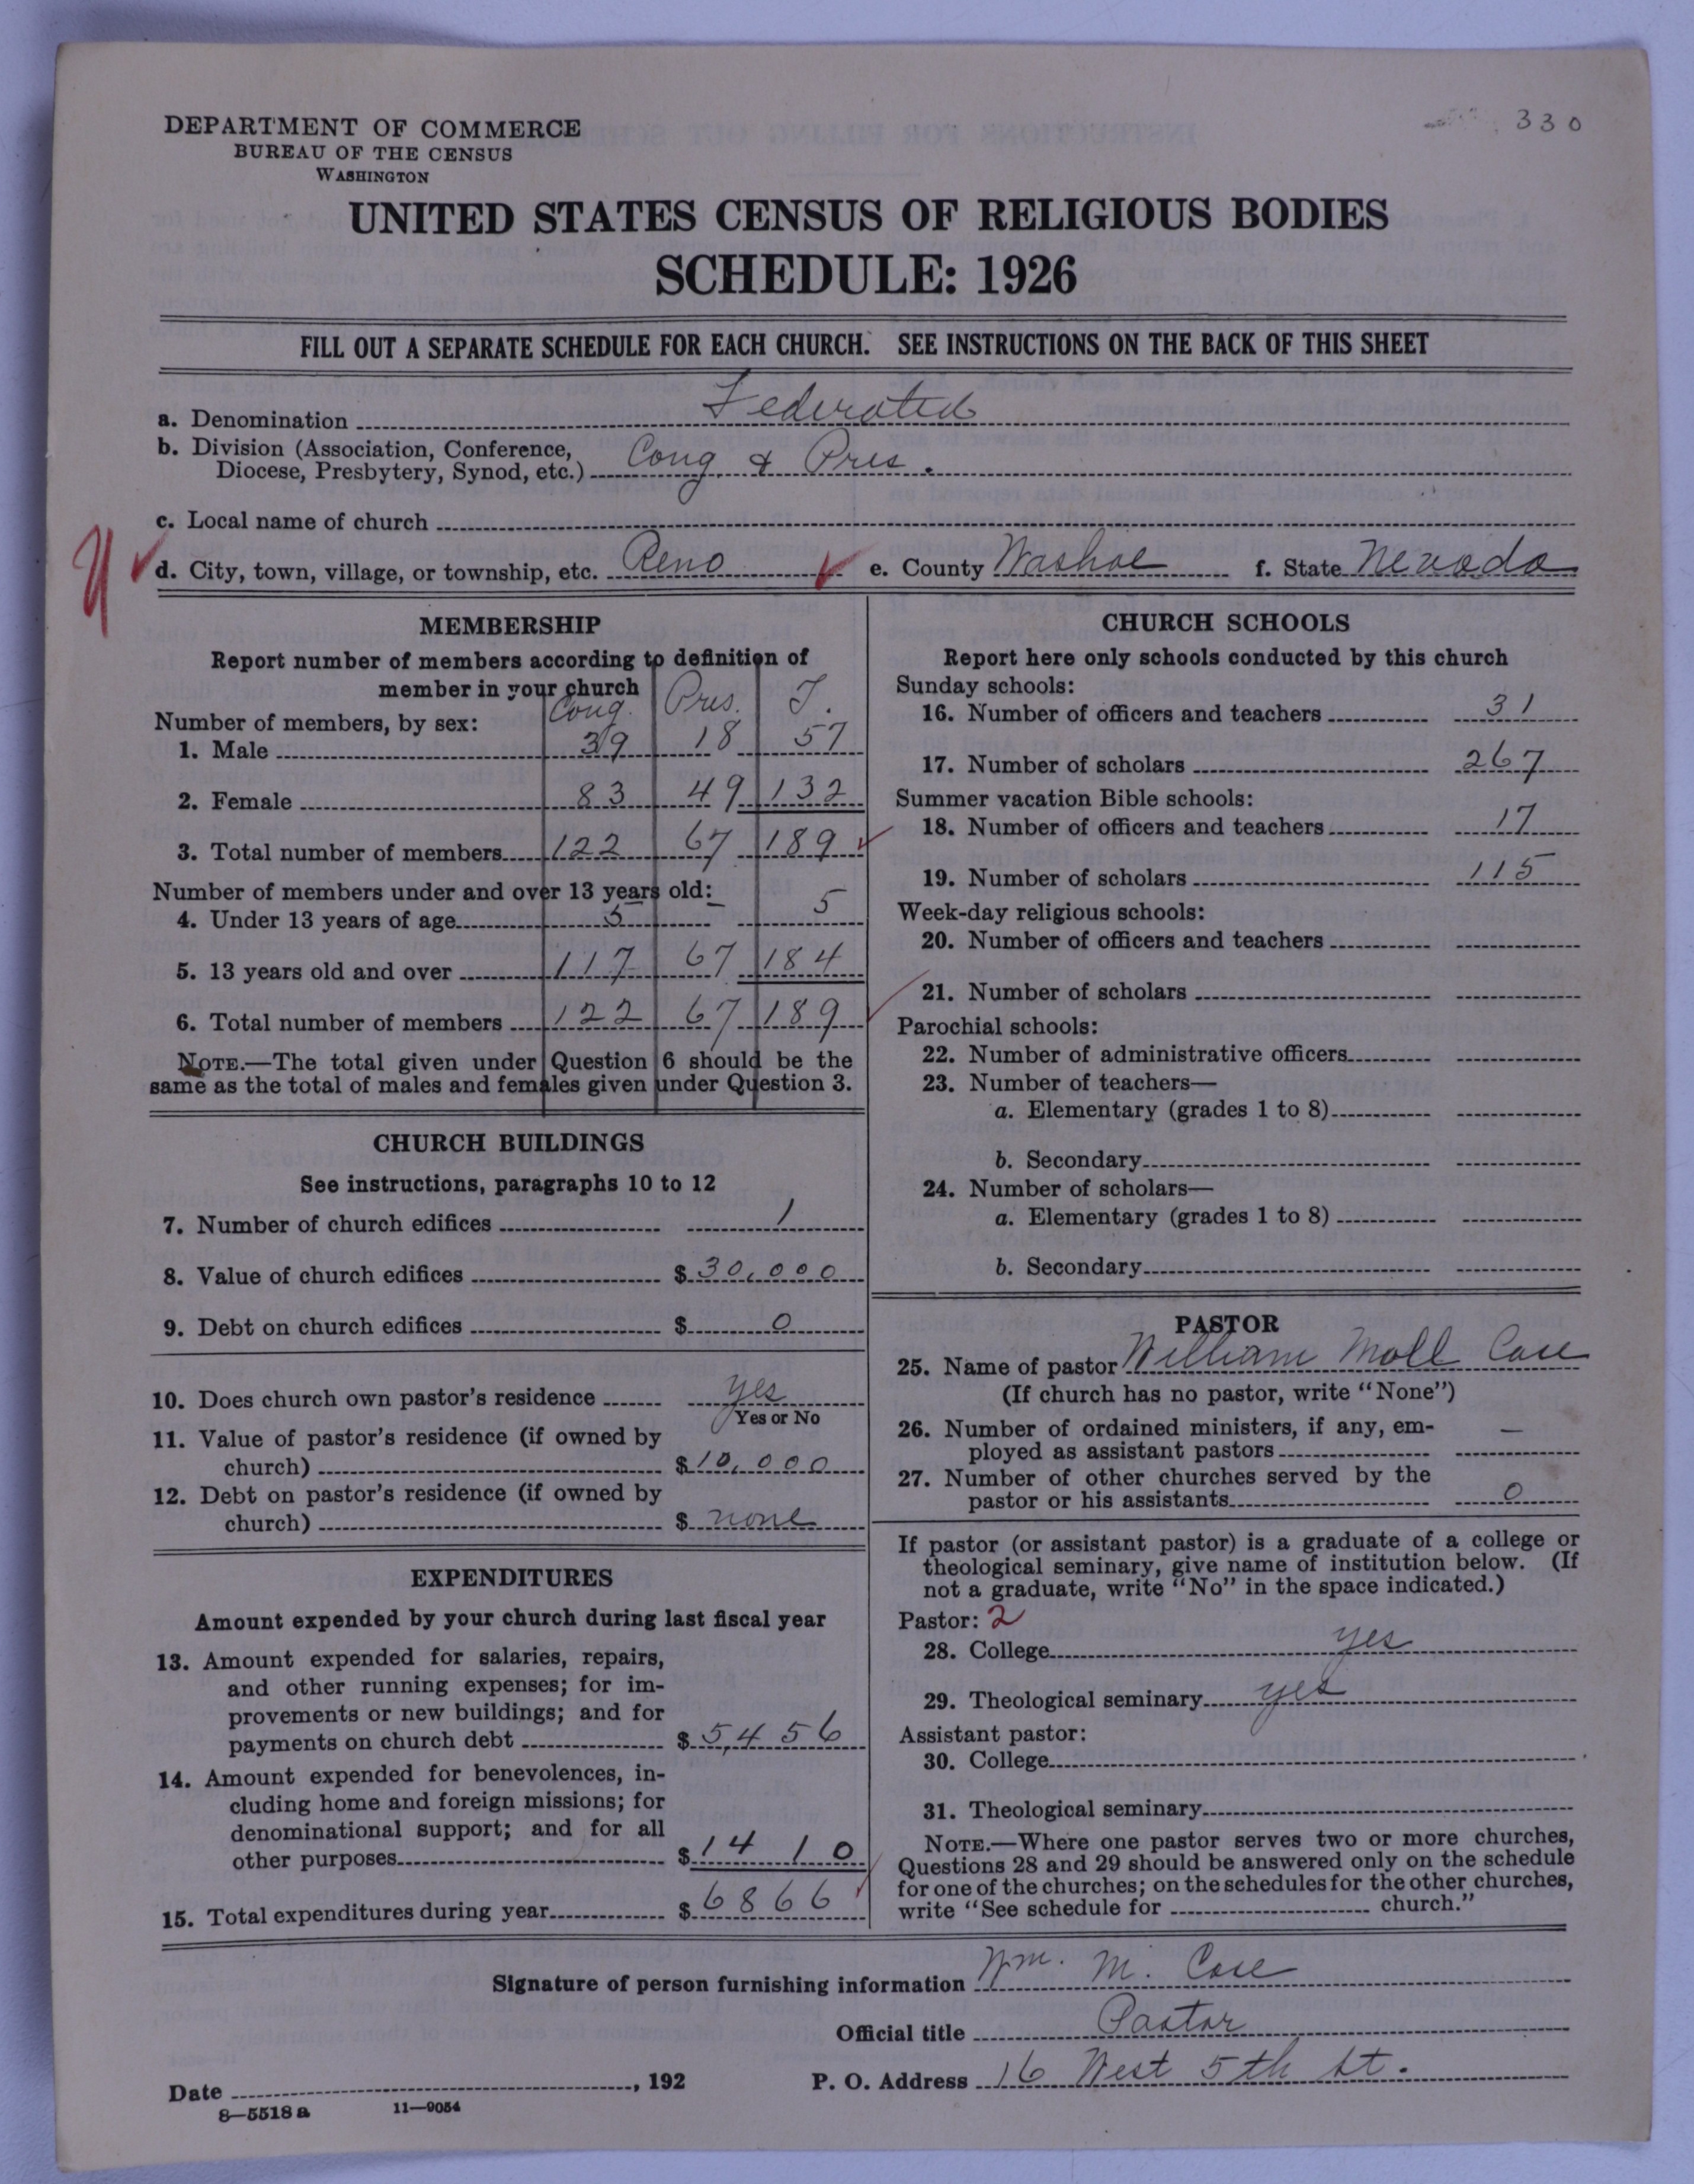 330
DEPARTMENT OF COMMERCE
BUREAU OF THE CENSUS
WASHINGTON
UNITED STATES CENSUS OF RELIGIOUS BODIES
SCHEDULE: 1926
FILL OUT A SEPARATE SCHEDULE FOR EACH CHURCH. SEE INSTRUCTIONS ON THE BACK OF THIS SHEET
a. Denomination Federated
b. Division (Association, Conference,
Diocese, Presbytery, Synod, etc.) Cong & Pres.
c. Local name of church
d. City, town, village, or township, etc. Reno e. County Washoe f. State Nevada
MEMBERSHIP
Report number of members according to definition of
member in your church
Cong. Pres. T.
Number of members, by sex:
1. Male 39 18 57
2. Female 83 49 132
3. Total number of members 122 67 189
Number of members under and over 13 years old:
4. Under 13 years of age 5 - 5
5. 13 years old and over 117 67 184
6. Total number of members 122 67 189
NOTE.—The total given under Question 6 should be the
same as the total of males and females given under Question 3.
CHURCH BUILDINGS
See instructions, paragraphs 10 to 12
7. Number of church edifices 1
8. Value of church edifices $ 30,000
9. Debt on church edifices $ 0
10. Does church own pastor's residence yes
Yes or No
11. Value of pastor's residence (if owned by
church) $ 10,000
12. Debt on pastor's residence (if owned by
church) $ none
EXPENDITURES
Amount expended by your church during last fiscal year
13. Amount expended for salaries, repairs,
and other running expenses; for im-
provements or new buildings; and for
payments on church debt $ 5,456
14. Amount expended for benevolences, in-
cluding home and foreign missions; for
denominational support; and for all
other purposes $ 1410
15. Total expenditures during year $ 6866
CHURCH SCHOOLS
Report here only schools conducted by this church
Sunday schools:
16. Number of officers and teachers 31
17. Number of scholars 267
Summer vacation Bible schools:
18. Number of officers and teachers 17
19. Number of scholars 115
Week-day religious schools:
20. Number of officers and teachers
21. Number of scholars
Parochial schools:
22. Number of administrative officers
23. Number of teachers—
a. Elementary (grades 1 to 8)
b. Secondary
24. Number of scholars—
a. Elementary (grades 1 to 8)
b. Secondary
PASTOR
25. Name of pastor William Moll Case
(If church has no pastor, write "None")
26. Number of ordained ministers, if any, em-
ployed as assistant pastors —
27. Number of other churches served by the
pastor or his assistants 0
If pastor (or assistant pastor) is a graduate of a college or
theological seminary, give name of institution below. (If
not a graduate, write "No" in the space indicated.)
Pastor: 2
28. College yes
29. Theological seminary yes
Assistant pastor:
30. College
31. Theological seminary
NOTE.—Where one pastor serves two or more churches,
Questions 28 and 29 should be answered only on the schedule
for one of the churches; on the schedules for the other churches,
write "See schedule for church."
Signature of person furnishing information Wm. M. Case
Official title Pastor
Date , 192 P. O. Address 16 West 5th St.
8—5518 a 11—9054